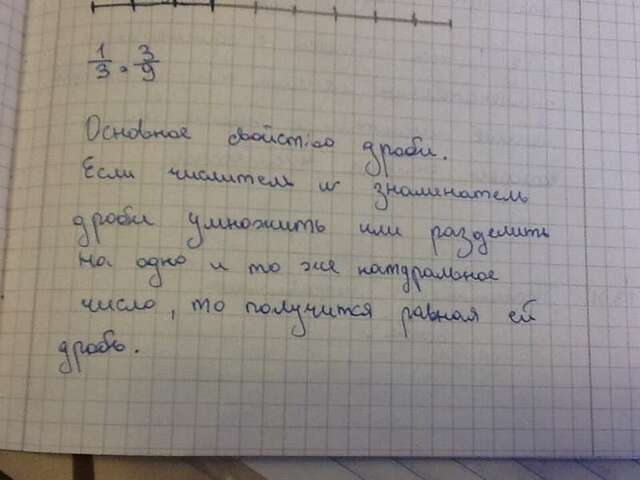 1/3 = 3/9
Основное свойство дроби.
Если числитель и знаминатель
дроби умножить или разделить
на одно и то же натуральное
число, то получится равная ей
дробь.